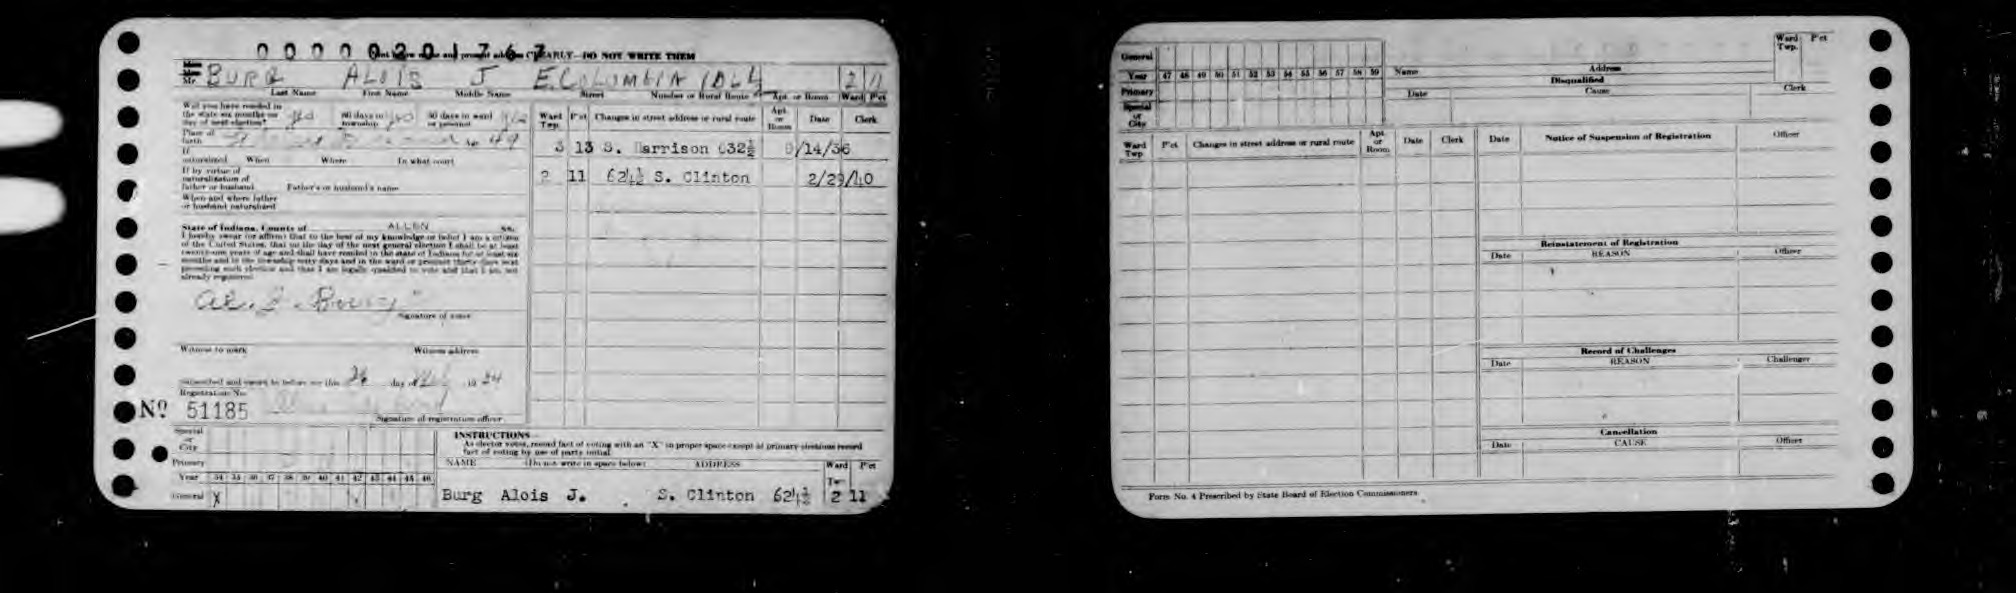 0 0 0 0 0 2 0 1 7 6 7 CLEARLY—DO NOT WRITE THEM
Mr. BURG ALOIS J E. COLUMBIA 1064 2 11
Last Name First Name Middle Name Street Number or Rural Route Apt. or Room Ward Pct
Will you have resided in the state six months on day of next election? 60 days in township 30 days in ward or precinct
Place of birth Age 49
If naturalized When Where In what court
If by virtue of naturalization of father or husband Father's or husband's name
When and where father or husband naturalized
Ward Twp. Pct Changes in street address or rural route Apt. or Room Date Clerk
3 13 S. Harrison 632½ 9/14/36
2 11 624½ S. Clinton 2/29/40
State of Indiana, County of ALLEN ss.
I hereby swear (or affirm) that to the best of my knowledge or belief I am a citizen
of the United States, that on the day of the next general election I shall be at least
twenty-one years of age and shall have resided in the state of Indiana for at least six
months and in the township sixty days and in the ward or precinct thirty days next
preceding such election and that I am legally qualified to vote and that I am not
already registered.
Al. J. Burg
Signature of voter
Witness to mark Witness address
Subscribed and sworn to before me this 26 day of 1934
Registration No.
No 51185
Signature of registration officer
Special or City
Primary
Year 34 35 36 37 38 39 40 41 42 43 44 45 46
General X
INSTRUCTIONS—
As elector votes, record fact of voting with an "X" in proper space except at primary elections record
fact of voting by use of party initial.
NAME (Do not write in space below) ADDRESS Ward Twp. Pct
Burg Alois J. S. Clinton 624½ 2 11
General
Year 47 48 49 50 51 52 53 54 55 56 57 58 59
Primary
Special or City
Name Address Ward Twp. Pct
Disqualified
Date Cause Clerk
Ward Twp. Pct Changes in street address or rural route Apt. or Room Date Clerk
Date Notice of Suspension of Registration Officer
Reinstatement of Registration
Date REASON Officer
Record of Challenges
Date REASON Challenger
Cancellation
Date CAUSE Officer
Form No. 4 Prescribed by State Board of Election Commissioners.